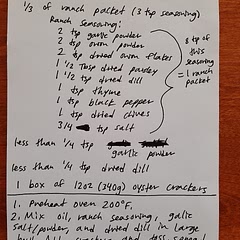 1/3 of ranch packet (3 tsp seasoning)
Ranch Seasoning:
2 tsp garlic powder
2 tsp onion powder
2 tsp dried onion flakes
1 1/2 Tbsp dried parsley
1 1/2 tsp dried dill
1 tsp thyme
1 tsp black pepper
1 tsp dried chives
3/4 tsp salt
3 tsp of
this
seasoning
= 1 ranch
packet
less than 1/4 tsp
garlic powder
less than 1/4 tsp dried dill
1 box of 12oz (340g) oyster crackers
1. Preheat oven 200°F.
2. Mix oil, ranch seasoning, garlic
salt/powder, and dried dill in large